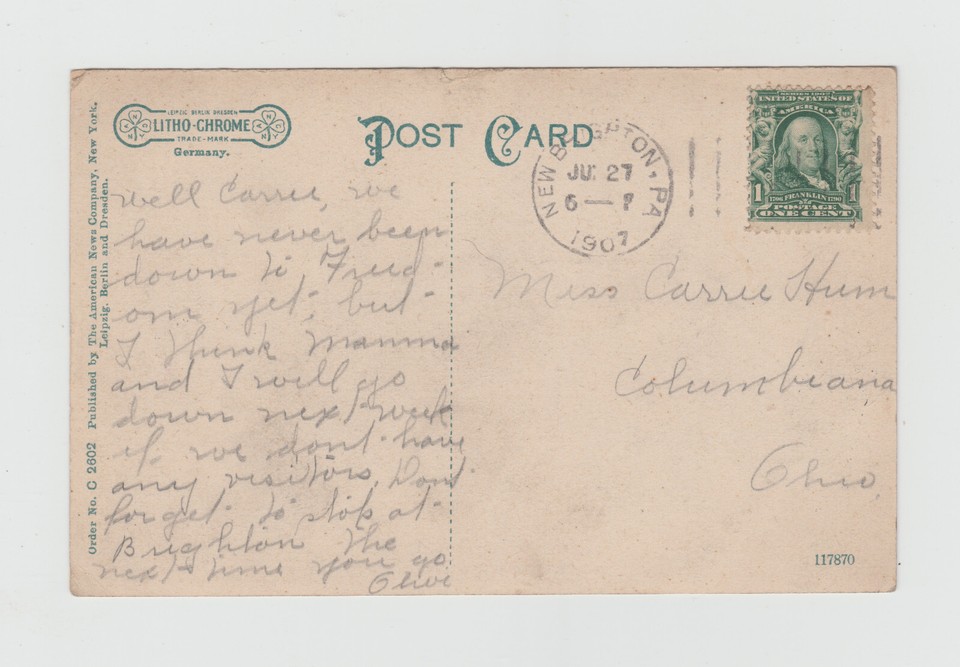 LEIPZIG BERLIN DRESDEN
LITHO-CHROME
TRADE-MARK
Germany.
POST CARD
NEW BRIGHTON, PA
JU: 27
6 —
1907
SERIES 1902
UNITED STATES OF
AMERICA
1 1
1706 FRANKLIN 1790
POSTAGE
ONE CENT
Order No. C 2602 Published by The American News Company, New York.
Leipzig, Berlin and Dresden.
Well Carrie, we
have never been
down to Freed-
om yet, but
I think Mamma
and I will go
down next week
if we dont have
any visitors. Dont
forget to stop at
Brighton the
next time you go
Olive
Miss Carrie Hum
Columbiana
Ohio
117870